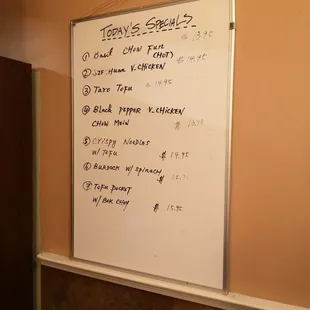 TODAY'S SPECIALS
① Basil CHOW FUN $ 13.95
(HOT)
② V. CHICKEN $ 14.95
③ TARO TOFU $ 14.95
④ BLACK PEPPER V. CHICKEN
CHOW MEIN $
⑤ CRISPY NOODLES
W/ TOFU $ 14.95
⑥ BURDOCK W/ SPINACH $
⑦ TOFU POCKET
W/ BOK CHOY $ 15.95